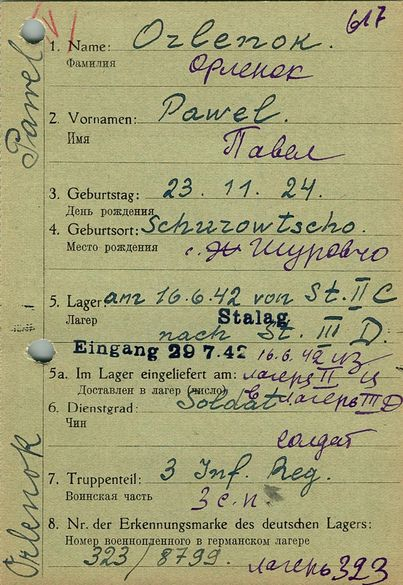 617
1. Name: Orlenok.
Фамилия Орленок
2. Vornamen: Pawel.
Имя Павел
3. Geburtstag: 23. 11. 24.
День рождения
4. Geburtsort: Schurowtscho.
Место рождения с. Шуровчо
5. Lager: am 16.6.42 von St. II C
Лагер Stalag
nach St. III D.
Eingang 29 7.42 16.6.42 из
5a. Im Lager eingeliefert am: лагерь II Ц
Доставлен в лагер (число) в лагерь III D
6. Dienstgrad: Soldat
Чин
солдат
7. Truppenteil: 3 Inf. Reg.
Воинская часть 3 с. п.
8. Nr. der Erkennungsmarke des deutschen Lagers:
Номер военнопленного в германском лагере
323/8799. лагерь 323
Pawel
Orlenok